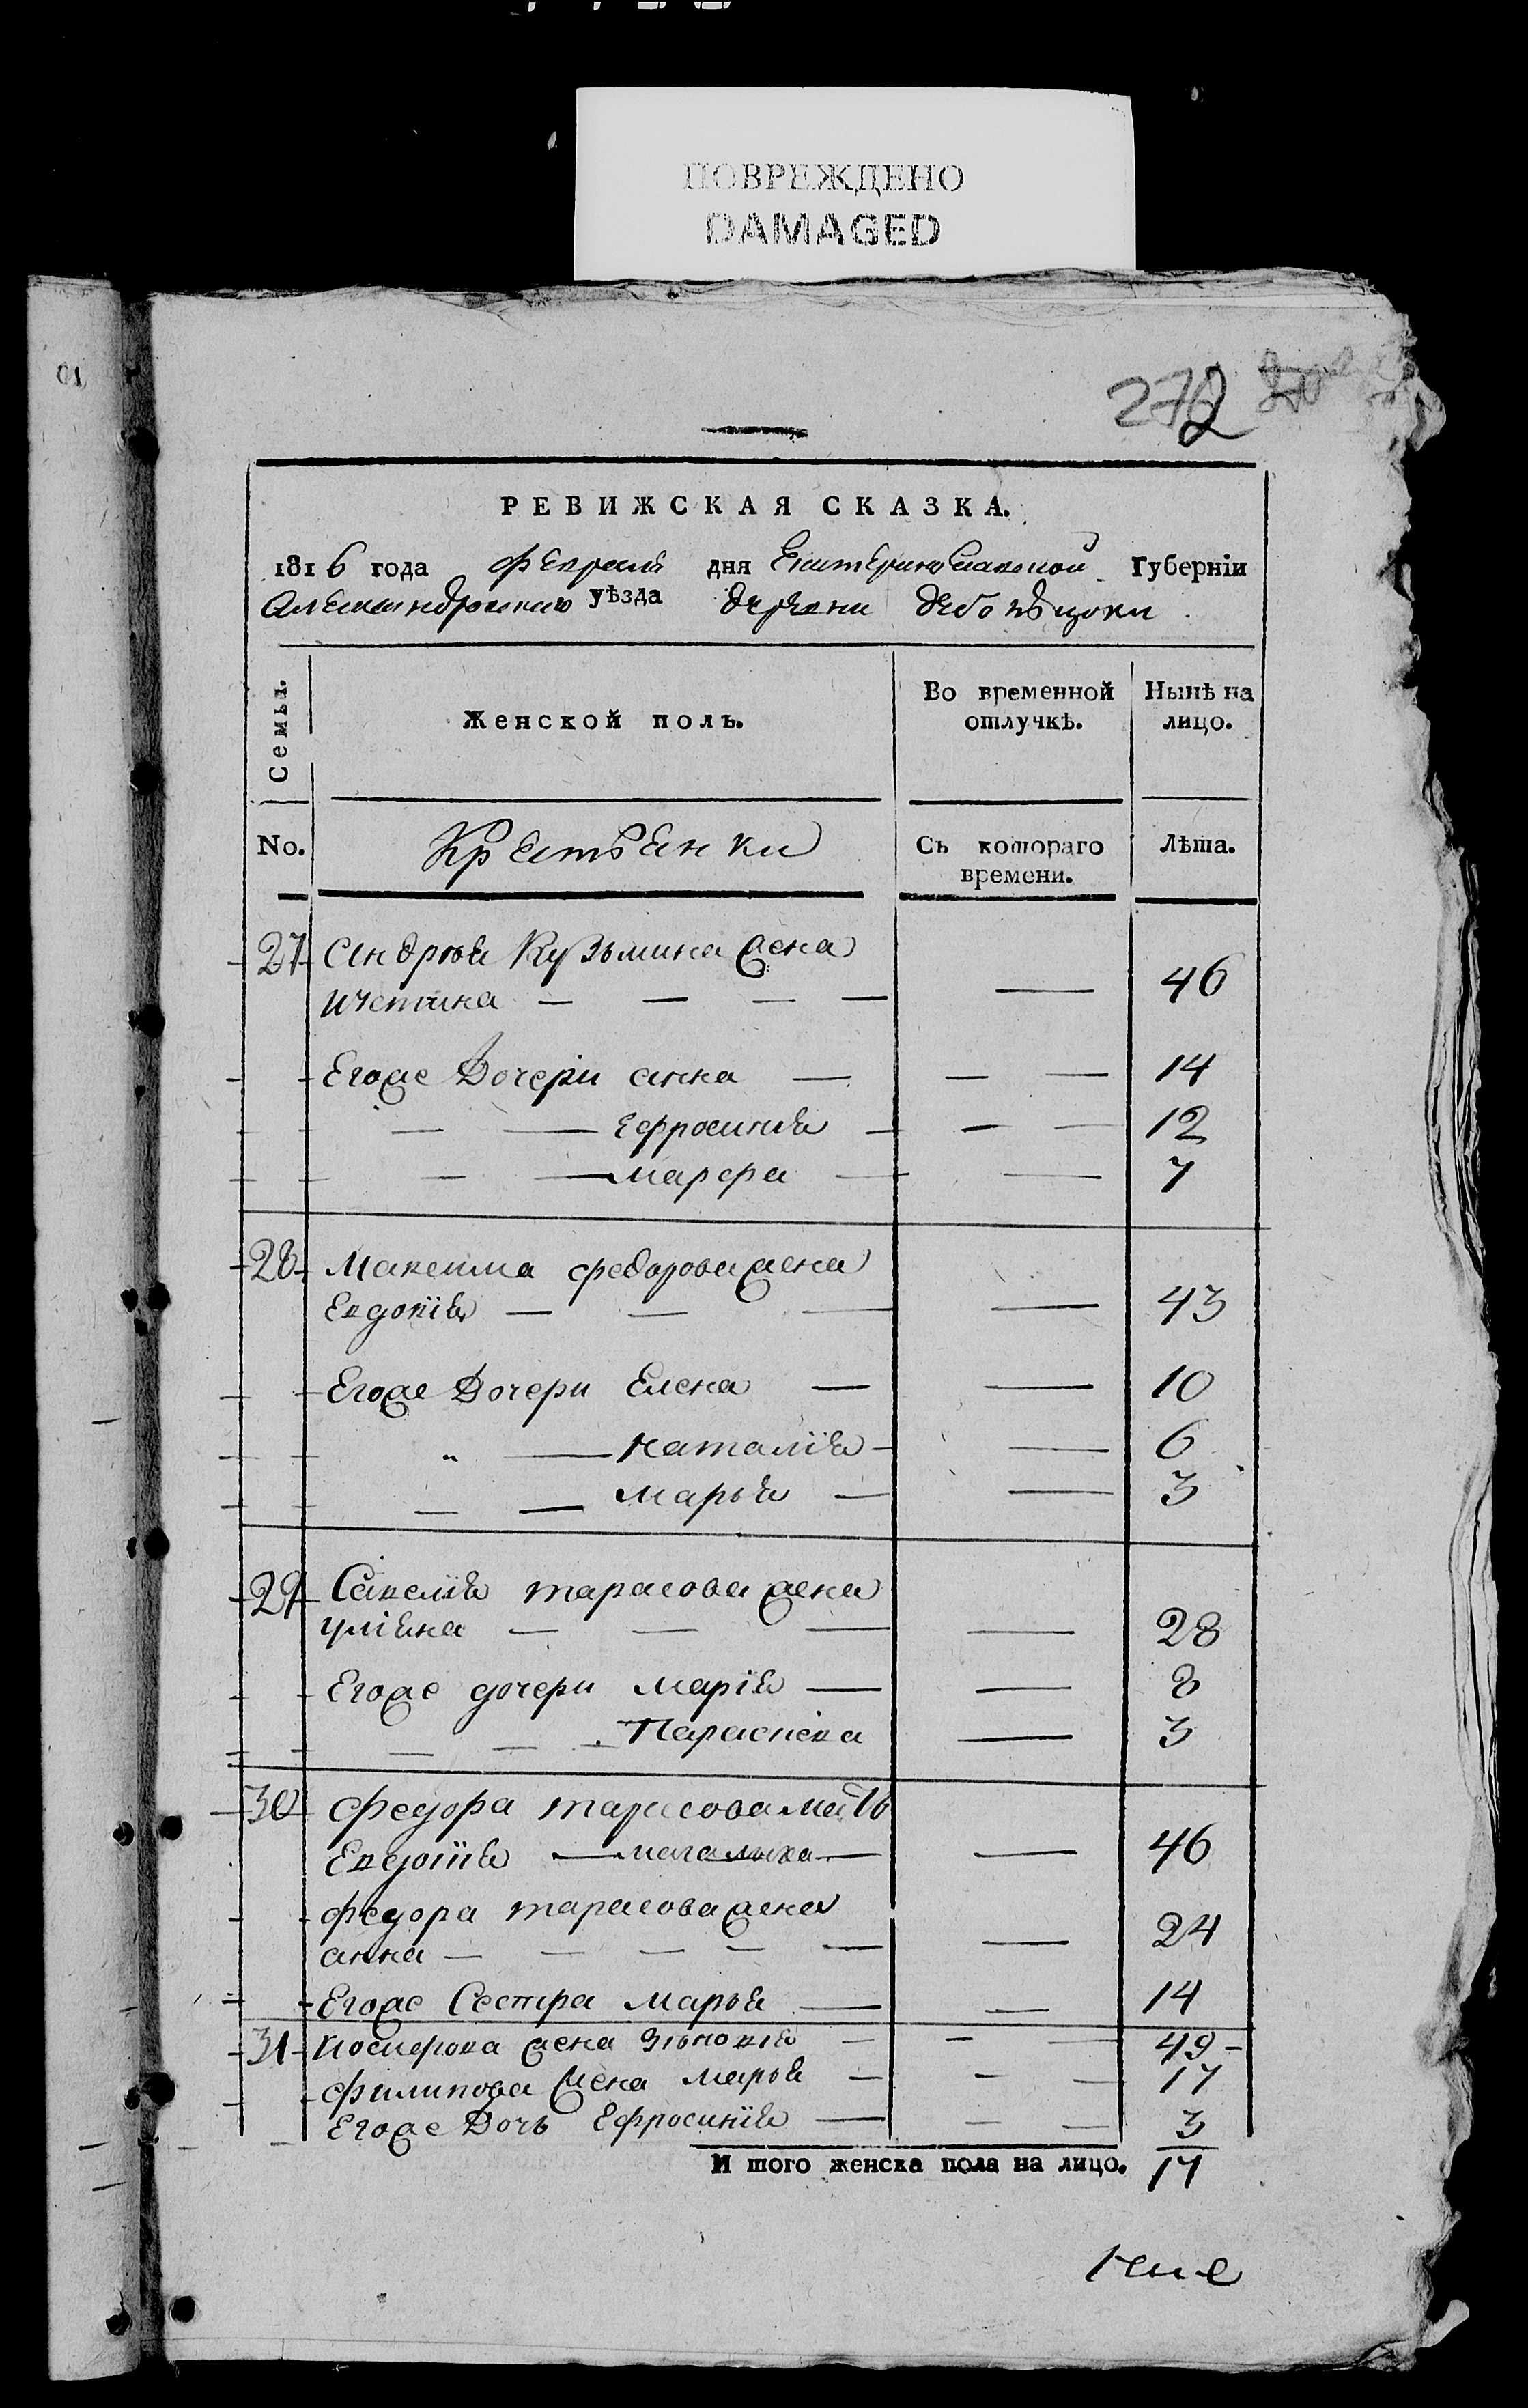 ПОВРЕЖДЕНО
DAMAGED
272
РЕВИЖСКАЯ СКАЗКА.
1816 года февраля дня Екатеринославской Губернiи
Александровского уѣзда деревни
Семьи.
Женской полъ.
Во временной отлучкѣ.
Нынѣ на лицо.
No.
Крестьянки
Съ котораго времени.
Лѣта.
27 Андрѣя Кузьмина жена
Устина — — — — — 46
Егоже Дочери анна — — — 14
— — Ефросиния — — — 12
— — марфа — — 7
28 Максима федорова жена
Евдокiя — — — — 43
Егоже Дочери Елена — — 10
" — наталiя — — 6
— — марья — — 3
29 Савелiя тарасова жена
улiяна — — — — 28
Егоже дочери марiя — — 8
— — — Параскева — 3
30 федора тарасова мать
Евдокiя — — — 46
федора тарасова жена
анна — — — — — — 24
Егоже Сестра марья — — 14
31 жена зѣновiя — — — 49 -
филипова жена марья — — — 17
Егоже Дочь Ефросинiя — — — 3
И того женска пола на лицо. 17